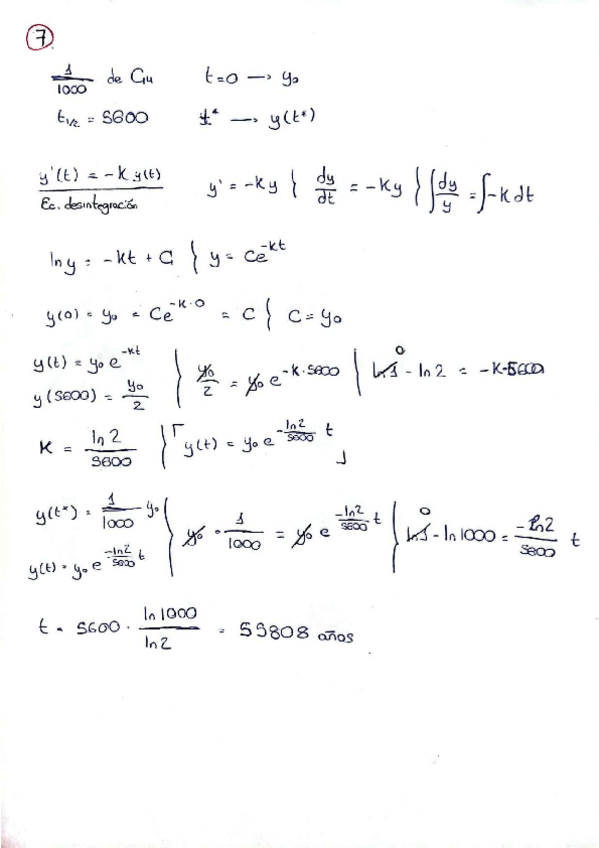 7
1/1000 de C14 t=0 → y₀
t₁/₂ = 5600 t* → y(t*)
y'(t) = -K y(t) y' = -Ky } dy/dt = -Ky } ∫dy/y = ∫-K dt
Ec. desintegración
ln y = -kt + C } y = Ce^-kt
y(0) = y₀ = Ce^-K·0 = C { C = y₀
y(t) = y₀ e^-kt
y(5600) = y₀/2 } y₀/2 = y₀ e^-K·5600 } ln1 - ln2 = -K·5600
0
K = ln2/5600 } y(t) = y₀ e^-ln2/5600 t
y(t*) = 1/1000 y₀
y(t) = y₀ e^-ln2/5600 t } y₀ · 1/1000 = y₀ e^-ln2/5600 t } ln1 - ln1000 = -ln2/5600 t
0
t = 5600 · ln1000/ln2 = 55808 años